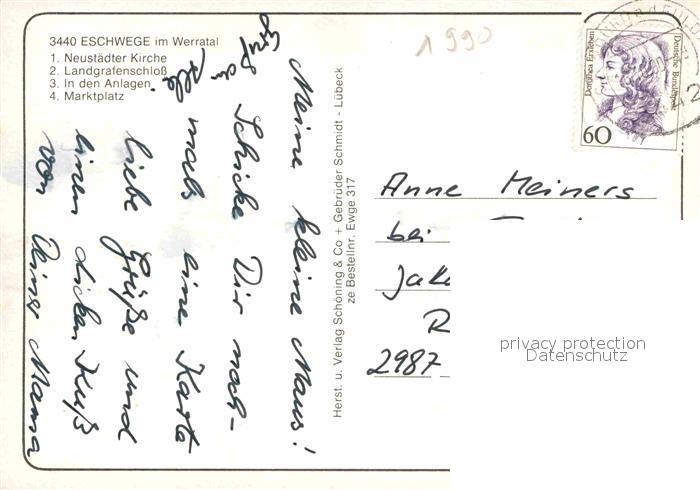 3440 ESCHWEGE im Werratal
1. Neustädter Kirche
2. Landgrafenschloß
3. In den Anlagen
4. Marktplatz
Meine kleine Maus!
Schicke Dir noch-
mals eine Karte
liebe Grüße und
einen dicken Kuß
von Deiner Mama
Herst. u. Verlag Schöning & Co + Gebrüder Schmidt - Lübeck
ze Bestellnr. Ewge 317
1990
Dorothea Erxleben
Deutsche Bundespost
60
Anne Meiners
bei
2987
privacy protection
Datenschutz